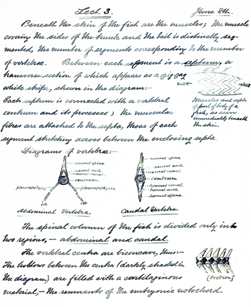 Lect 3. June 8th.
Beneath the skin of the fish are the muscles; The muscles
covering the sides of the trunk and the tail is distinctly seg-
mented, the number of segments corresponding to the number
of vertebrae. Between each segment is a septum, a
transverse section of which appears as a
white stripe, shewn in the diagram.
Each septum is connected with a vertebral
centrum and its processes; The muscular
fibres are attached to the septa, those of each
segment stretching across between the enclosing septa.
Muscles and septa
of part of body of a
fish, as seen
immediately beneath
the skin.
Diagrams of vertebrae:-
neural spine
neural spine
Abdominal Vertebra.
Caudal Vertebra.
The spinal column of the fish is divided only into
two regions, - abdominal and caudal.
The vertebral centra are biconcave, thus:-
The hollows between the centra (darkly shaded in
the diagram) are filled with a cartilaginous
material,- the remnants of the embryonic notochord.